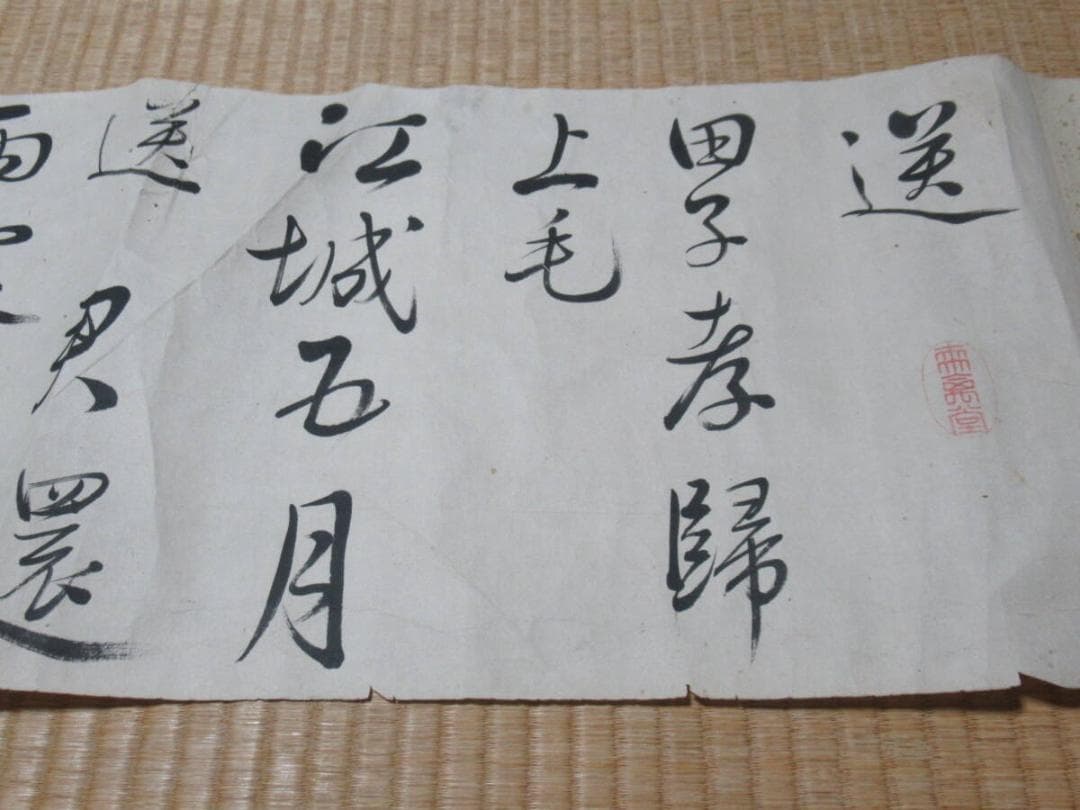 送
田子孝歸
上毛
江城五月
送君還
雨